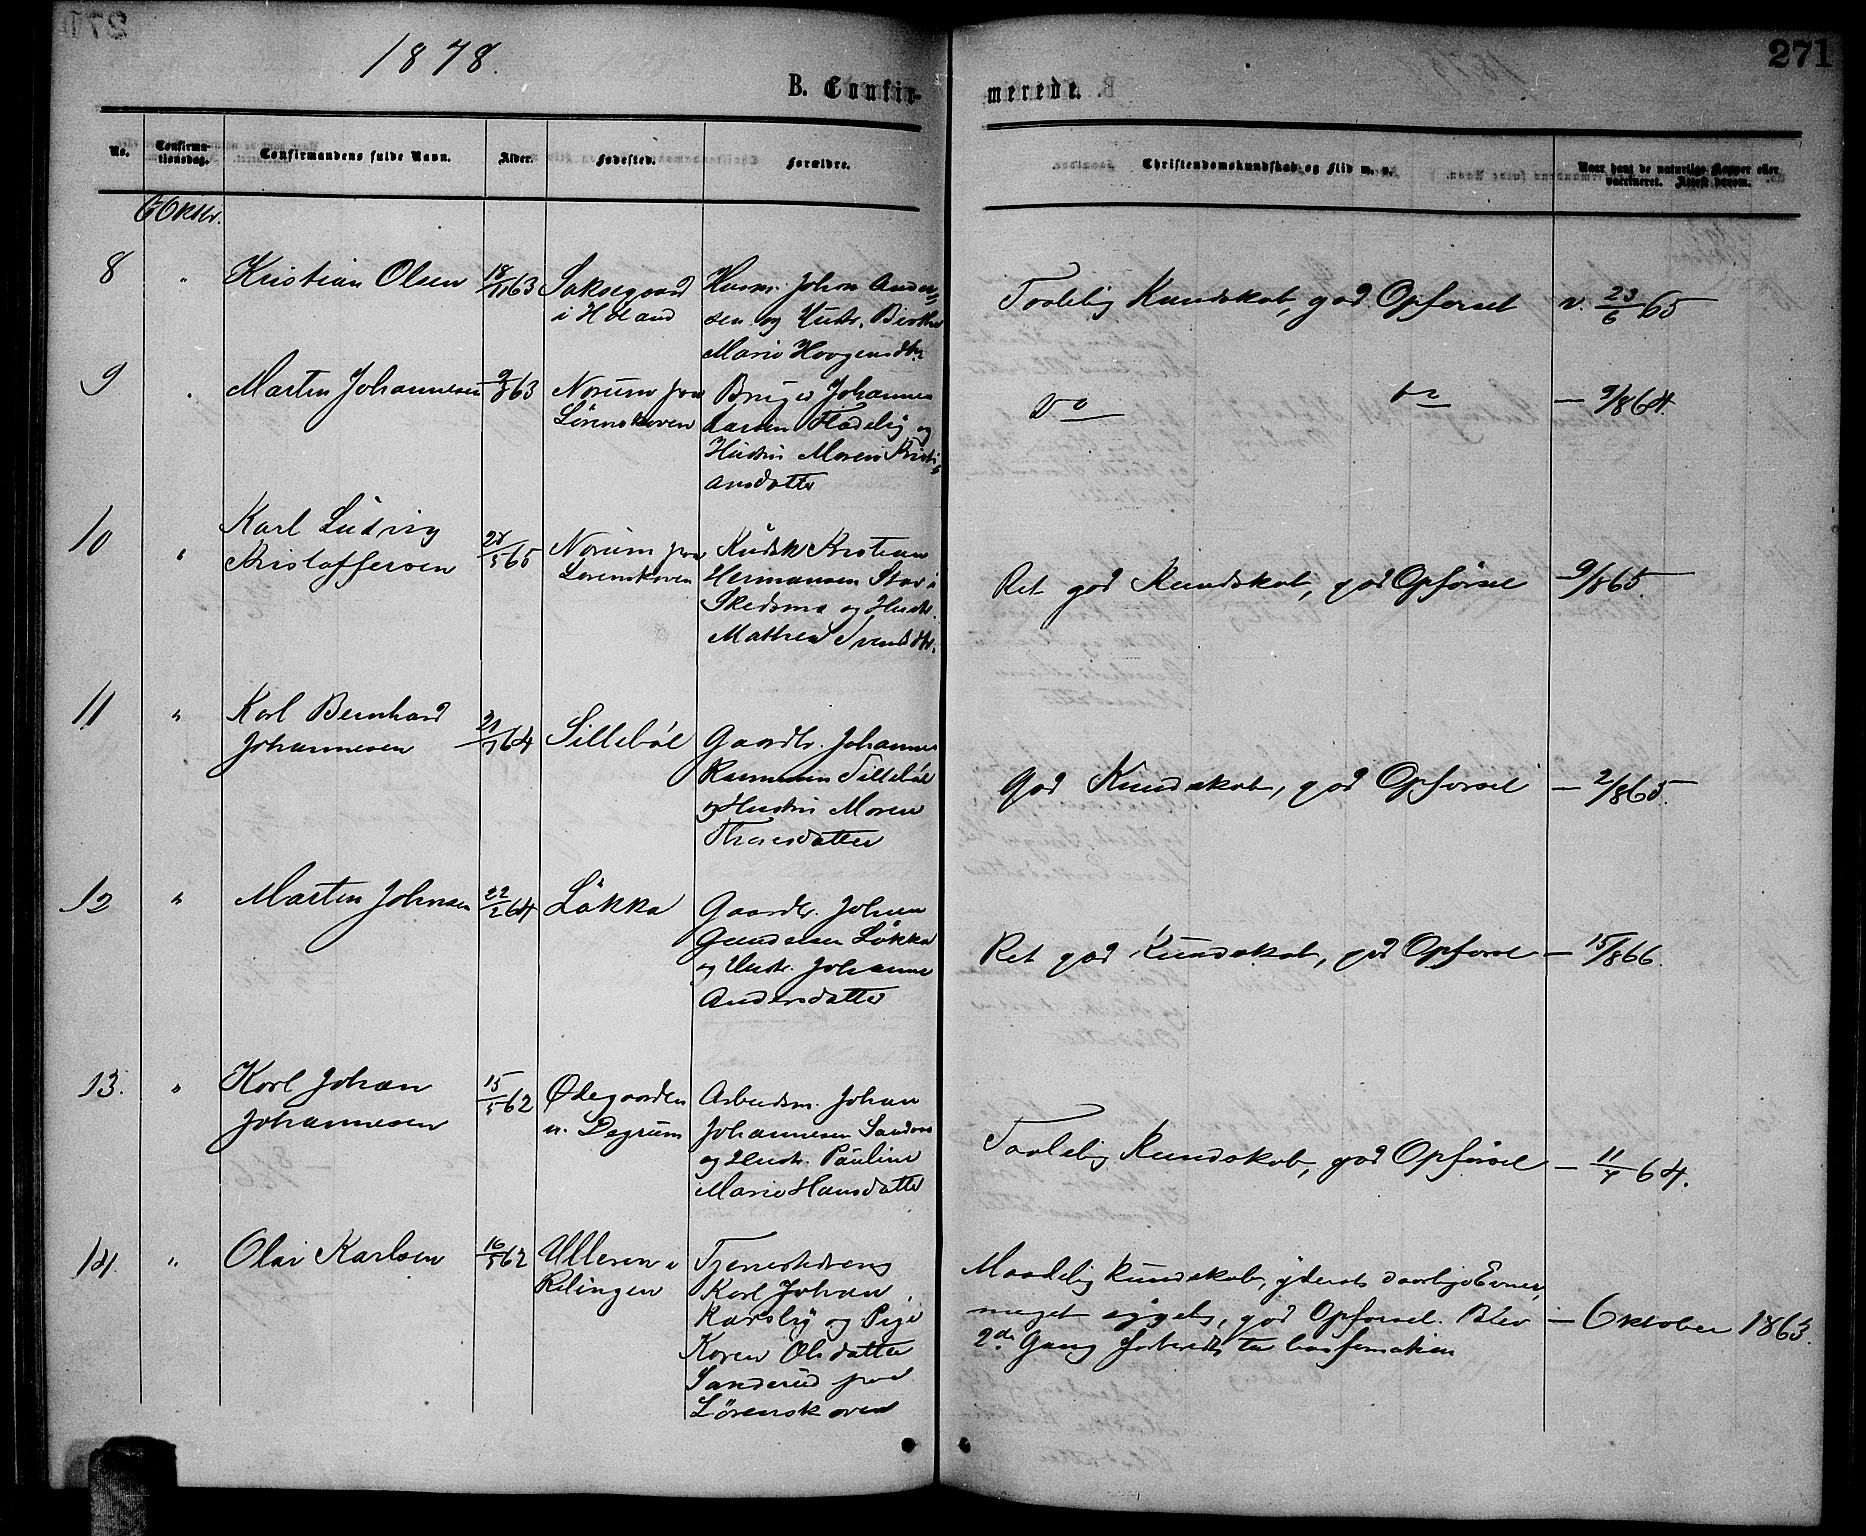 1878.
271
B. Confir-
merede.
No.
Confirma-
tionsdag.
Confirmandens fulde Navn.
Alder.
Fødested.
Forældre.
Christendomskundskab og Flid m. v.
Naar havt de naturlige Kopper eller
vaccineret. Attest derom.
6 Oktbr.
8 " Kristian Olsen 18/11 63
Saksegaard
i Höland
Husm. Johan Ander-
sen og Hustr. Birthe
Marie Haagensdtr.
Taalelig Kundskab, god Opførsel v. 23/6 65
9 " Martin Johannesen 9/8 63
Norum paa
Lørenskoven
Bruger Johannes
Larsen Fladeby og
Hustru Maren Kristi-
ansdatter
Do Do — 9/8 64
10 "
Karl Ludvig
Kristoffersen
65
Norum paa
Lørenskoven
Kudsk Kristian
Hermansen Stav i
Skedsmo og Hustr.
Mathea Svendsdtr.
Ret god Kundskab, god Opførsel 9/8 65.
11 "
Karl Bernhard
Johannesen
64
Sillebøl
Gaardbr. Johannes
Rasmussen Sillebøl
og Hustru Maren
Thoresdatter
God Kundskab, god Opførsel — 2/8 65.
12 " Martin Johnsen 22/2 64 Løkka
Gaardbr. Johan
Gundersen Løkka
og Hustr. Johanne
Andersdatter
Ret god Kundskab, god Opførsel — 15/8 66.
13. "
Karl Johan
Johannesen
15/5 62
Ødegaarden
u. Degrum
Arbeidsm. Johan
Johannesen
og Hustr. Pauline
Marie Hansdatter
Taalelig Kundskab, god Opførsel — 11/7 64.
14. " Olai Karlsen 16/5 62
Ulleren i
Relingen
Tjenestedreng
Karl Johan
Karsby og Pige
Karen Olsdatter
Sanderud paa
Lørenskoven
Maadelig Kundskab, yderst daarlige Evner,
meget god Opførsel. Blev — 6 Oktober 1863.
2de Gang forberedt til Confirmation